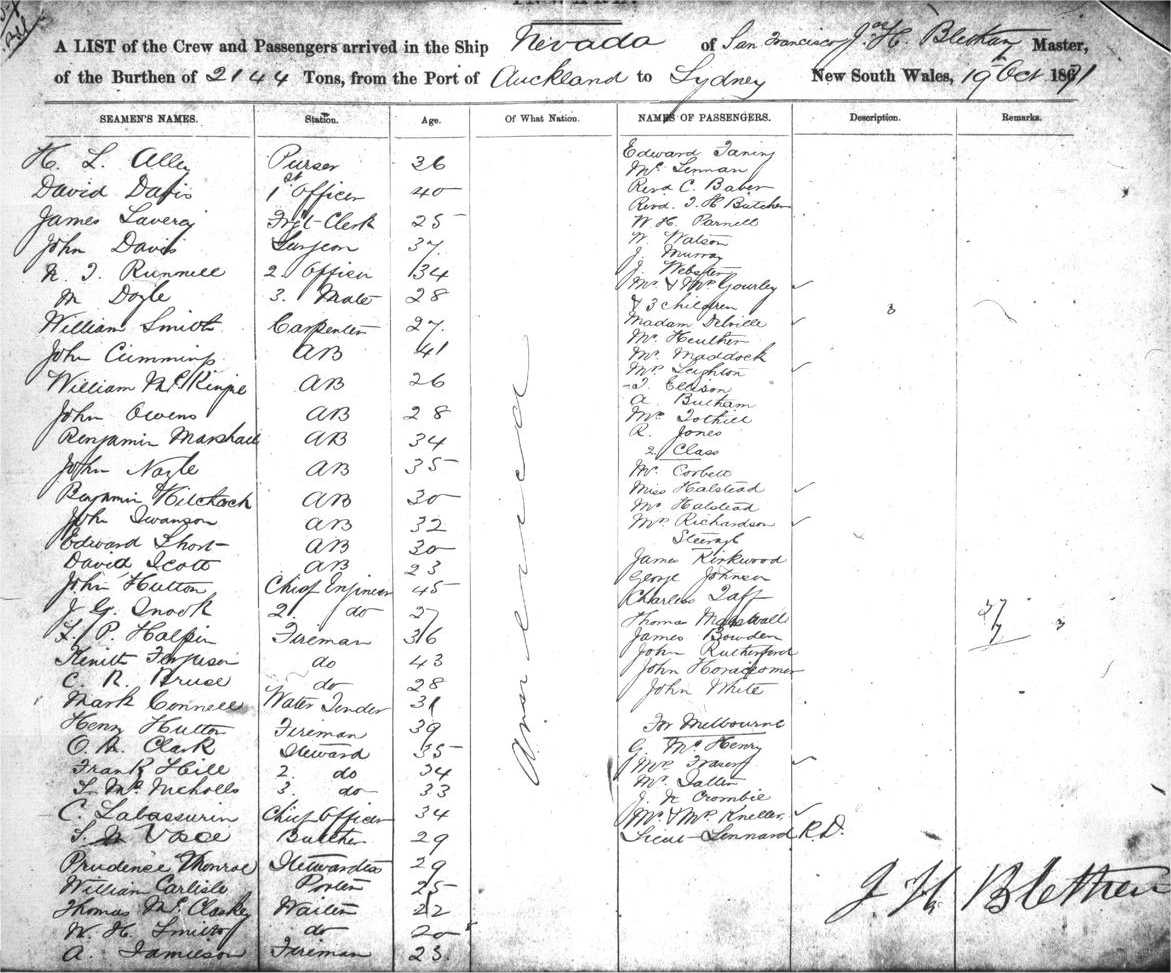 A LIST of the Crew and Passengers arrived in the Ship Nevada of San Francisco, Jas H. Blethen Master,
of the Burthen of 2144 Tons, from the Port of Auckland to Sydney New South Wales, 19 Oct 1871
SEAMEN'S NAMES. Station. Age. Of What Nation. NAMES OF PASSENGERS. Description. Remarks.
H. L. Alley Purser 36
David Davis 1st Officer 40
James Laverty Frgt Clerk 25
John Davis Surgeon 37
2 Officer 34
M Doyle 3. Mate 28
William Smith Carpenter 27
John Cummings AB 41
William AB 26
John Owens AB 28
Benjamin Marshall AB 34
John Nagle AB 35
Benjamin Hitchcock AB 30
John Swanson AB 32
Edward Short AB 30
David Scott AB 23
John Hutton Chief Engineer 45
J. G. Snook 2 do 27
P. Halpin Fireman 36
Ferguson do 43
C. R. Bruse do 28
Mark Connell Water Tender 31
Henry Hutton Fireman 39
Clark Steward 35
Frank Hill 2. do 34
Mc Nicholls 3. do 33
C. Chief Officer 34
Butcher 29
Prudence Monroe Stewardess 29
William Carlisle Porter 25
Thomas McClaskey Waiter 22
W. H. do 20
A. Jamieson Fireman 23.
American
Edward
Mr Lennan
Revd C. Baber
Revd
W. H. Parnell
W. Watson
J. Murray
J. Webster
Mr & Mrs Gourley
& 3 children 3
Madam
Mr
Mr Maddock
Mrs Leighton
Ellison
A.
Mr Tothill
R. Jones
2 Class
Mr Corbett
Miss Halstead
Mr Halstead
Mrs Richardson
Steerage
James Kirkwood
George Johnson
Charles Taft
Thomas Marshall
James Bowden
John Rutherford
John
John White
For Melbourne
G. McHenry
Mrs Fraser
Mr
J. N. Crombie
Mr & Mrs Kneller
Lieut Lennard R.D.
37
7
3
J H Blethen